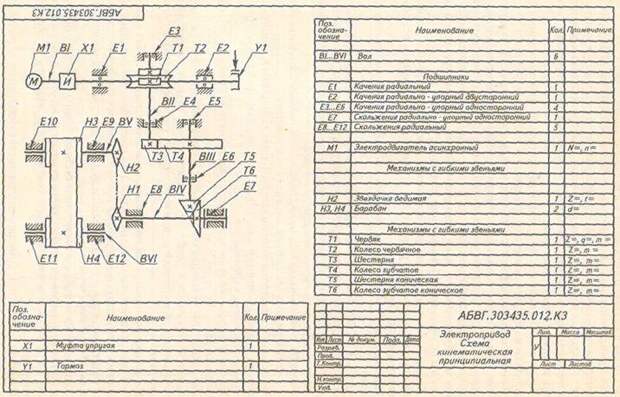 АБВГ.303435.012.К3
E3
M1 BI X1 E1 T1 T2 E2 Y1
М И
BII E4 E5
E10 H3 E9 BV
T3 T4
H2 BIII E6 T5
T6
H1 E8 BIV E7
E11 H4 E12 BVI
Поз. обозна-чение Наименование Кол. Примечание
BI...BVI Вал 6
Подшипники
E1 Качения радиальный 1
E2 Качения радиально-упорный двусторонний 1
E3...E6 Качения радиально-упорный односторонний 4
E7 Скольжения радиально-упорный односторонний 1
E8...E12 Скольжения радиальный 5
M1 Электродвигатель асинхронный 1 N=, n=
Механизмы с гибкими звеньями
H2 Звездочка ведимая 1 Z=, t=
H3, H4 Барабан 2 d=
Механизмы с гибкими звеньями
T1 Червяк 1 Z=, q=, m=
T2 Колесо червячное 1 Z=, m=
T3 Шестерня 1 Z=, m=
T4 Колесо зубчатое 1 Z=, m=
T5 Шестерня коническая 1 Z=, m=
T6 Колесо зубчатое коническое 1 Z=, m=
Поз. обозна-чение Наименование Кол. Примечание
X1 Муфта упругая 1
Y1 Тормоз 1
АБВГ.303435.012.К3
Электропривод
Схема
кинематическая
принципиальная
Лит. Масса Масштаб
У
Лист Листов
Изм Лист № докум. Подп. Дата
Разраб.
Пров.
Т.контр.
Н.контр.
Утв.